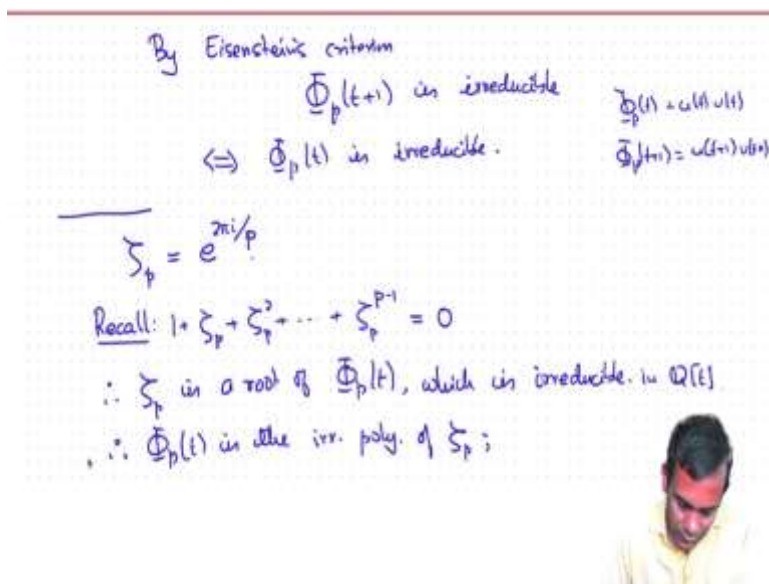 By Eisenstein's criterion
Φ_p(t+1) is irreducible
⟺ Φ_p(t) is irreducible.
Φ_p(t) = u(t) v(t)
Φ_p(t+1) = u(t+1) v(t+1)
ζ_p = e^{2πi/p}
Recall: 1 + ζ_p + ζ_p^2 + ⋯ + ζ_p^{p-1} = 0
∴ ζ_p is a root of Φ_p(t), which is irreducible. in Q[t]
∴ Φ_p(t) is the irr. poly. of ζ_p ;